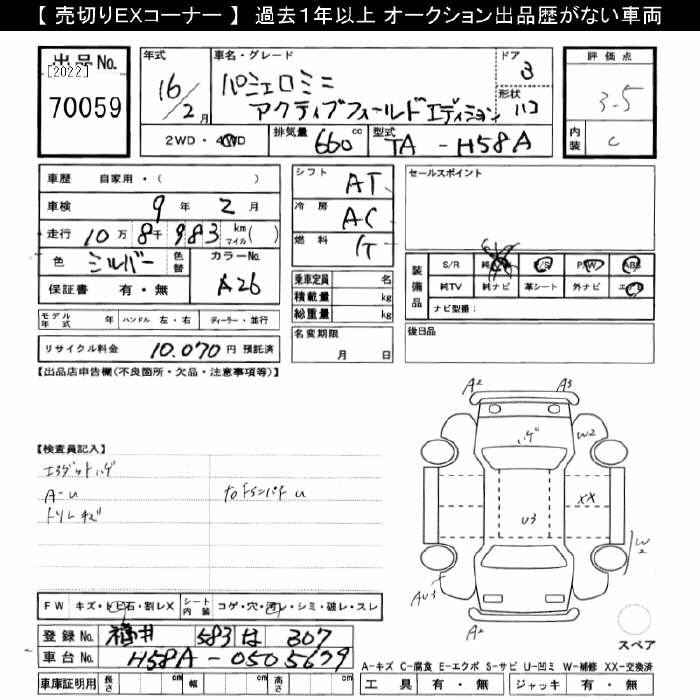 【 売切りEXコーナー 】 過去1年以上 オークション出品歴がない車両
出品No.
[2022]
70059
年式
16/2月
車名・グレード
パジェロミニ
アクティブフィールドエディション
ドア
3
形状
ハコ
評価点
3.5
内装
C
2WD・4WD
排気量 660 cc
型式 TA-H58A
車歴 自家用・( )
車検 9年 2月
走行 10万 8千 983 km マイル( )
色 シルバー 色替
カラーNo. A26
保証書 有・無
シフト AT
冷房 AC
燃料 G
乗車定員 名
積載量 kg
総重量 kg
セールスポイント
装備品
S/R P/S P/W ABS
純TV 純ナビ 革シート 外ナビ エアB
ナビ型番:
モデル年式 年 ハンドル 左・右 ディーラー・並行
リサイクル料金 10.070 円 預託済
名変期限
月 日
後日品
【出品店申告欄(不良箇所・欠品・注意事項等)】
【検査員記入】
A-U
A2 A3
ハゲ W2
XX
U3
W2
AU3
A2
スペア
FW キズ・トビ石・割レX シート内装 コゲ・穴・汚レ・シミ・破レ・スレ
登録No. 福井 583 は 307
車台No. H58A-0505679
車庫証明用 長さ cm 幅 cm 高さ cm
A-キズ C-腐食 E-エクボ S-サビ U-凹ミ W-補修 XX-交換済
工具 有・無 ジャッキ 有・無